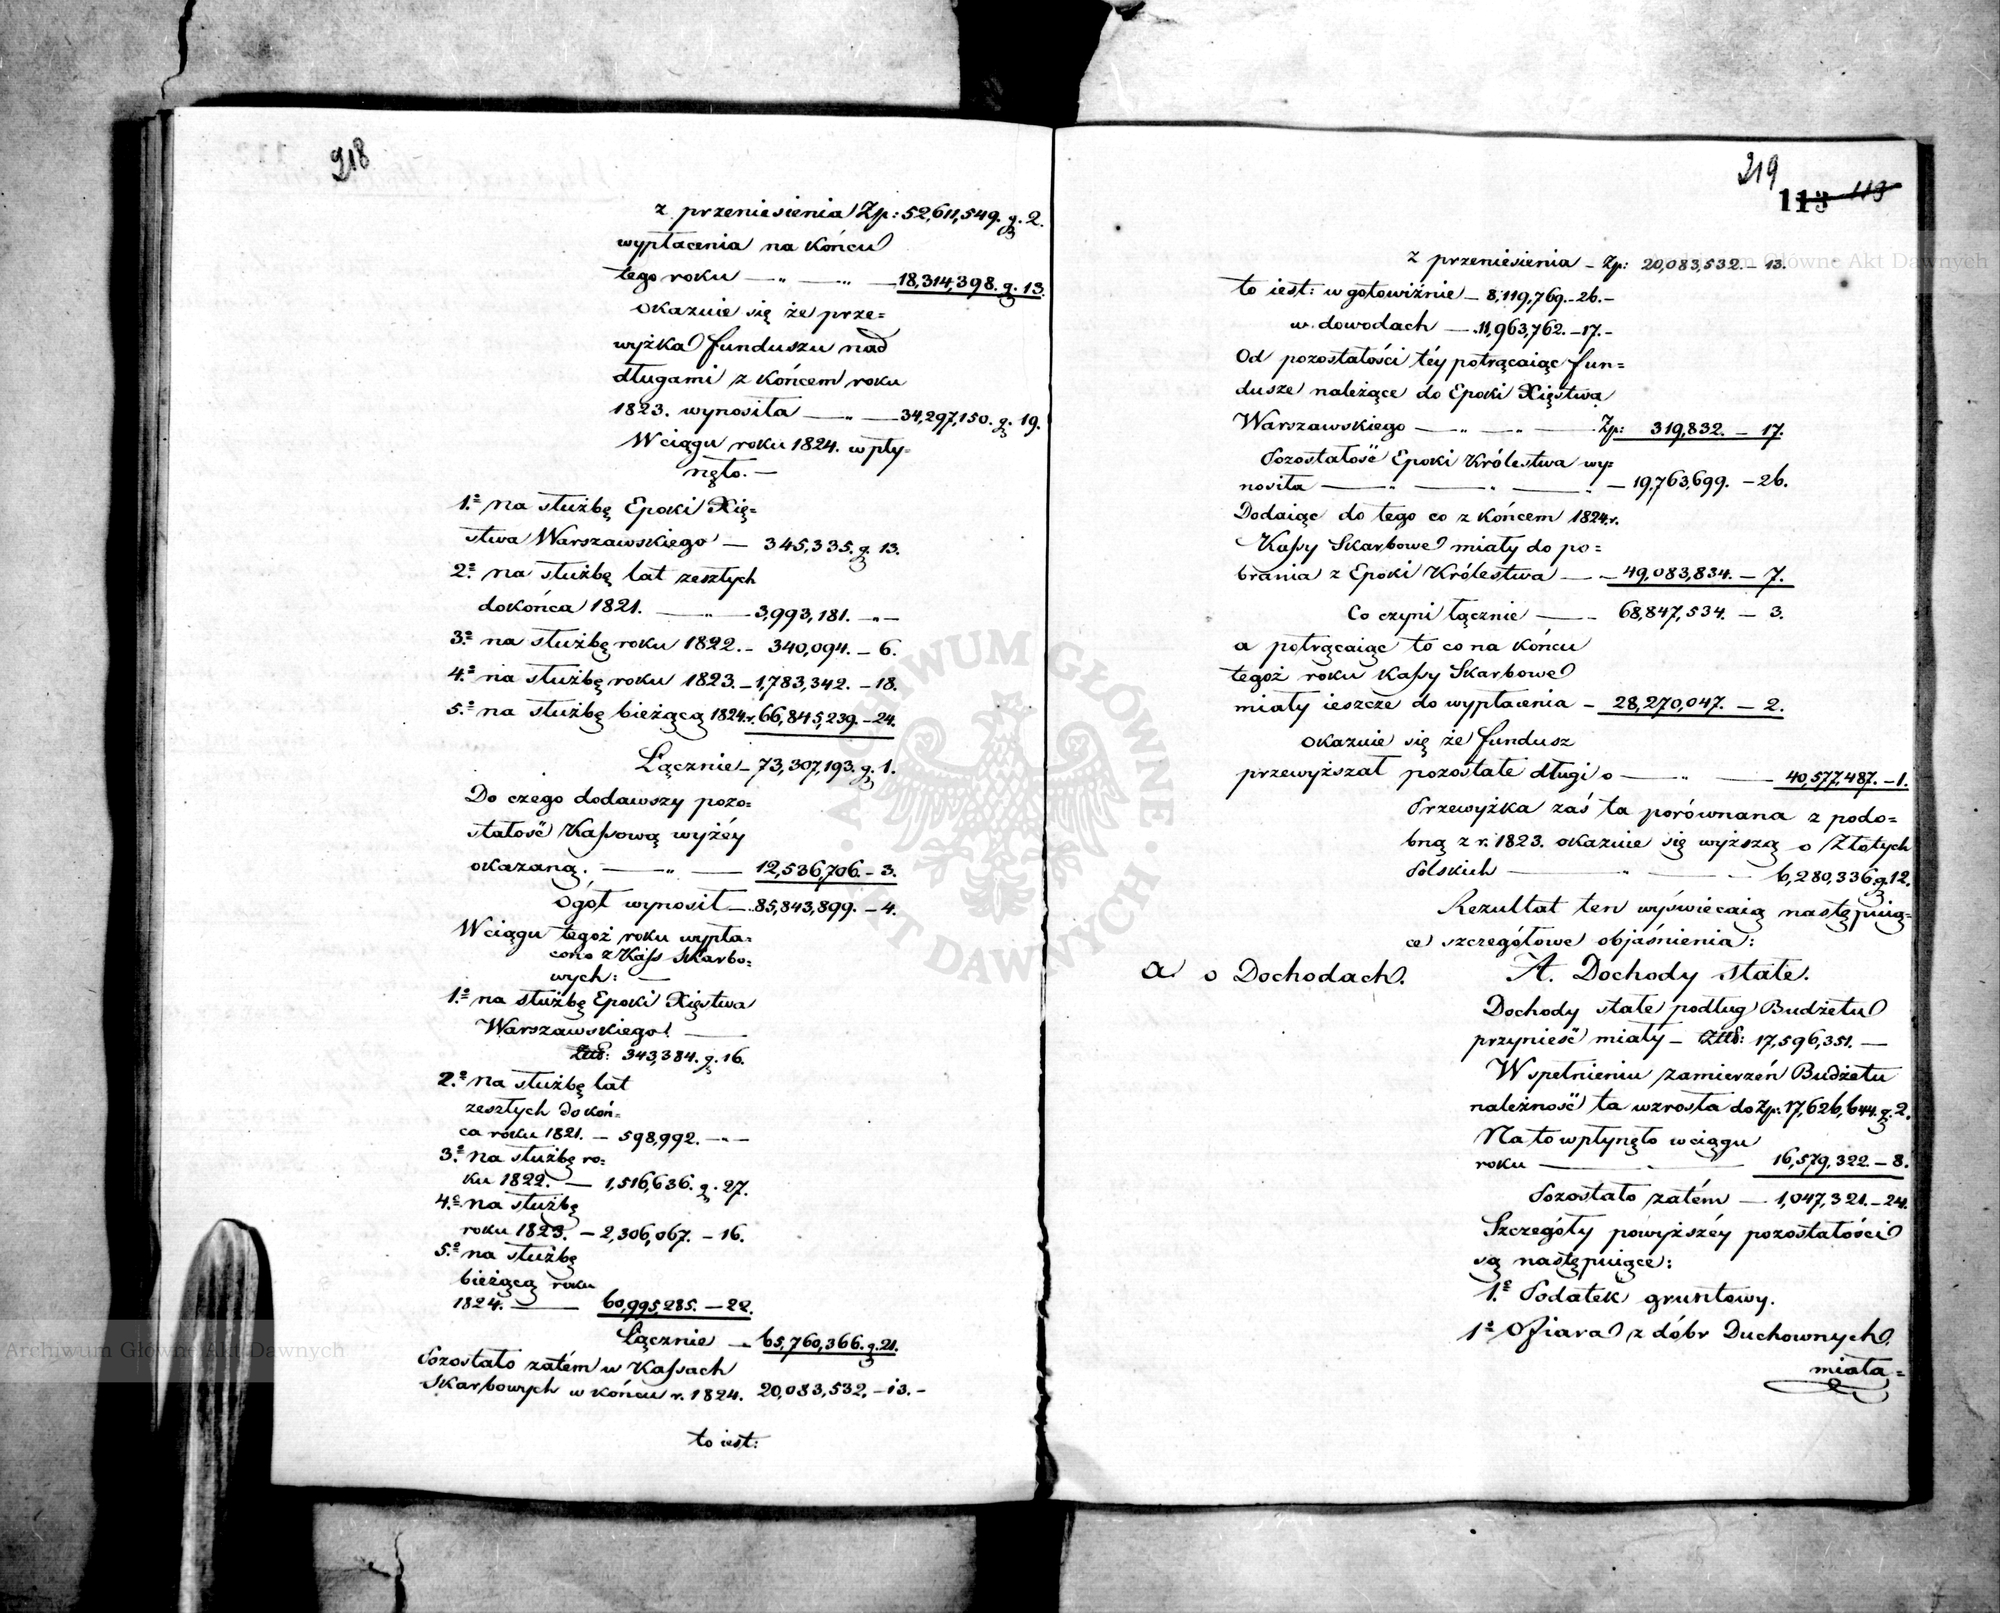 218
z przeniesienia Zp: 52,611,549. g. 2.
wypłacenia na końcu
tego roku — „ — — 18,314,398. g. 13.
okazuie się że prze=
wyżka funduszu nad
długami z końcem roku
1823. wynosiła — „ — 34,297,150. g. 19.
W ciągu roku 1824. wpły-
nęło. —
1.º na służbę Epoki Xię=
stwa Warszawskiego — 345,335. g. 13.
2.º na służbę lat zeszłych
do końca 1821. — „ — 3,993,181. — „ —
3.º na służbę roku 1822. - 340,094. — 6.
4.º na służbę roku 1823. - 1,783,342. — 18.
5.º na służbę bieżącą 1824.r. 66,845,239. — 24.
Łącznie — 73,307,193. g. 1.
Do czego dodawszy pozo=
stałość Kassową wyżéy
okazaną. — „ — 12,536,706. — 3.
Ogół wynosił — 85,843,899. — 4.
W ciągu tegoż roku wypła=
cono z Kass Skarbo=
wych: —
1.º na służbę Epoki Xięstwa
Warszawskiego! —
Złtt: 343,384. g. 16.
2.º na służbę lat
zeszłych do koń=
ca roku 1821. — 598,992. — „ —
3.º na służbę ro=
ku 1822. — 1,516,636. g. 27.
4.º na służbę
roku 1823. — 2,306,067. — 16.
5.º na służbę
bieżącą roku
1824. — 60,995,285. — 22.
Łącznie — 65,760,366. g. 21.
Pozostało zatém w Kassach
Skarbowych w końcu r. 1824. 20,083,532. — 13. -
to iest:
219
113 113
z przeniesienia — Zp: 20,083,532. — 13.
to iest: w gotowiźnie — 8,119,769. - 26. -
w dowodach — 11,963,762. - 17. -
Od pozostałości téy potrącaiąc fun=
dusze należące do Epoki Xięstwa
Warszawskiego — „ — „ — Zp: 319,832. — 17.
Pozostałość Epoki Królestwa wy=
nosiła — „ — „ — „ — 19,763,699. — 26.
Dodaiąc do tego co z końcem 1824.r.
Kassy Skarbowe miały do po=
brania z Epoki Królestwa — 49,083,834. — 7.
Co czyni łącznie — 68,847,534. — 3.
a potrącaiąc to co na końcu
tegoż roku Kassy Skarbowe
miały ieszcze do wypłacenia — 28,270,047. — 2.
okazuie się że fundusz
przewyższał pozostałe długi o — „ — 40,577,487. — 1.
Przewyżka zaś ta porównana z podo=
bną z r. 1823. okazuie się wyższą o Złotych
Polskich — „ — 6,280,336. g. 12.
Rezultat ten wyświecaią następuią=
ce szczegółowe objaśnienia:
a o Dochodach. A. Dochody stałe.
Dochody stałe podług Budżetu
przynieść miały — Złtt: 17,596,351. —
W spełnieniu zamierzeń Budżetu
należność ta wzrosła do Zp: 17,626,644. g. 2.
Na to wpłynęło w ciągu
roku — — 16,579,322. — 8.
Pozostało zatém — 1,047,321. — 24.
Szczegóły powyższéy pozostałości
są następuiące:
1.º Podatek gruntowy.
1º Ofiara z dóbr Duchownych.
miała =
Archiwum Główne Akt Dawnych
ARCHIWUM GŁÓWNE AKT DAWNYCH
Archiwum Główne Akt Dawnych